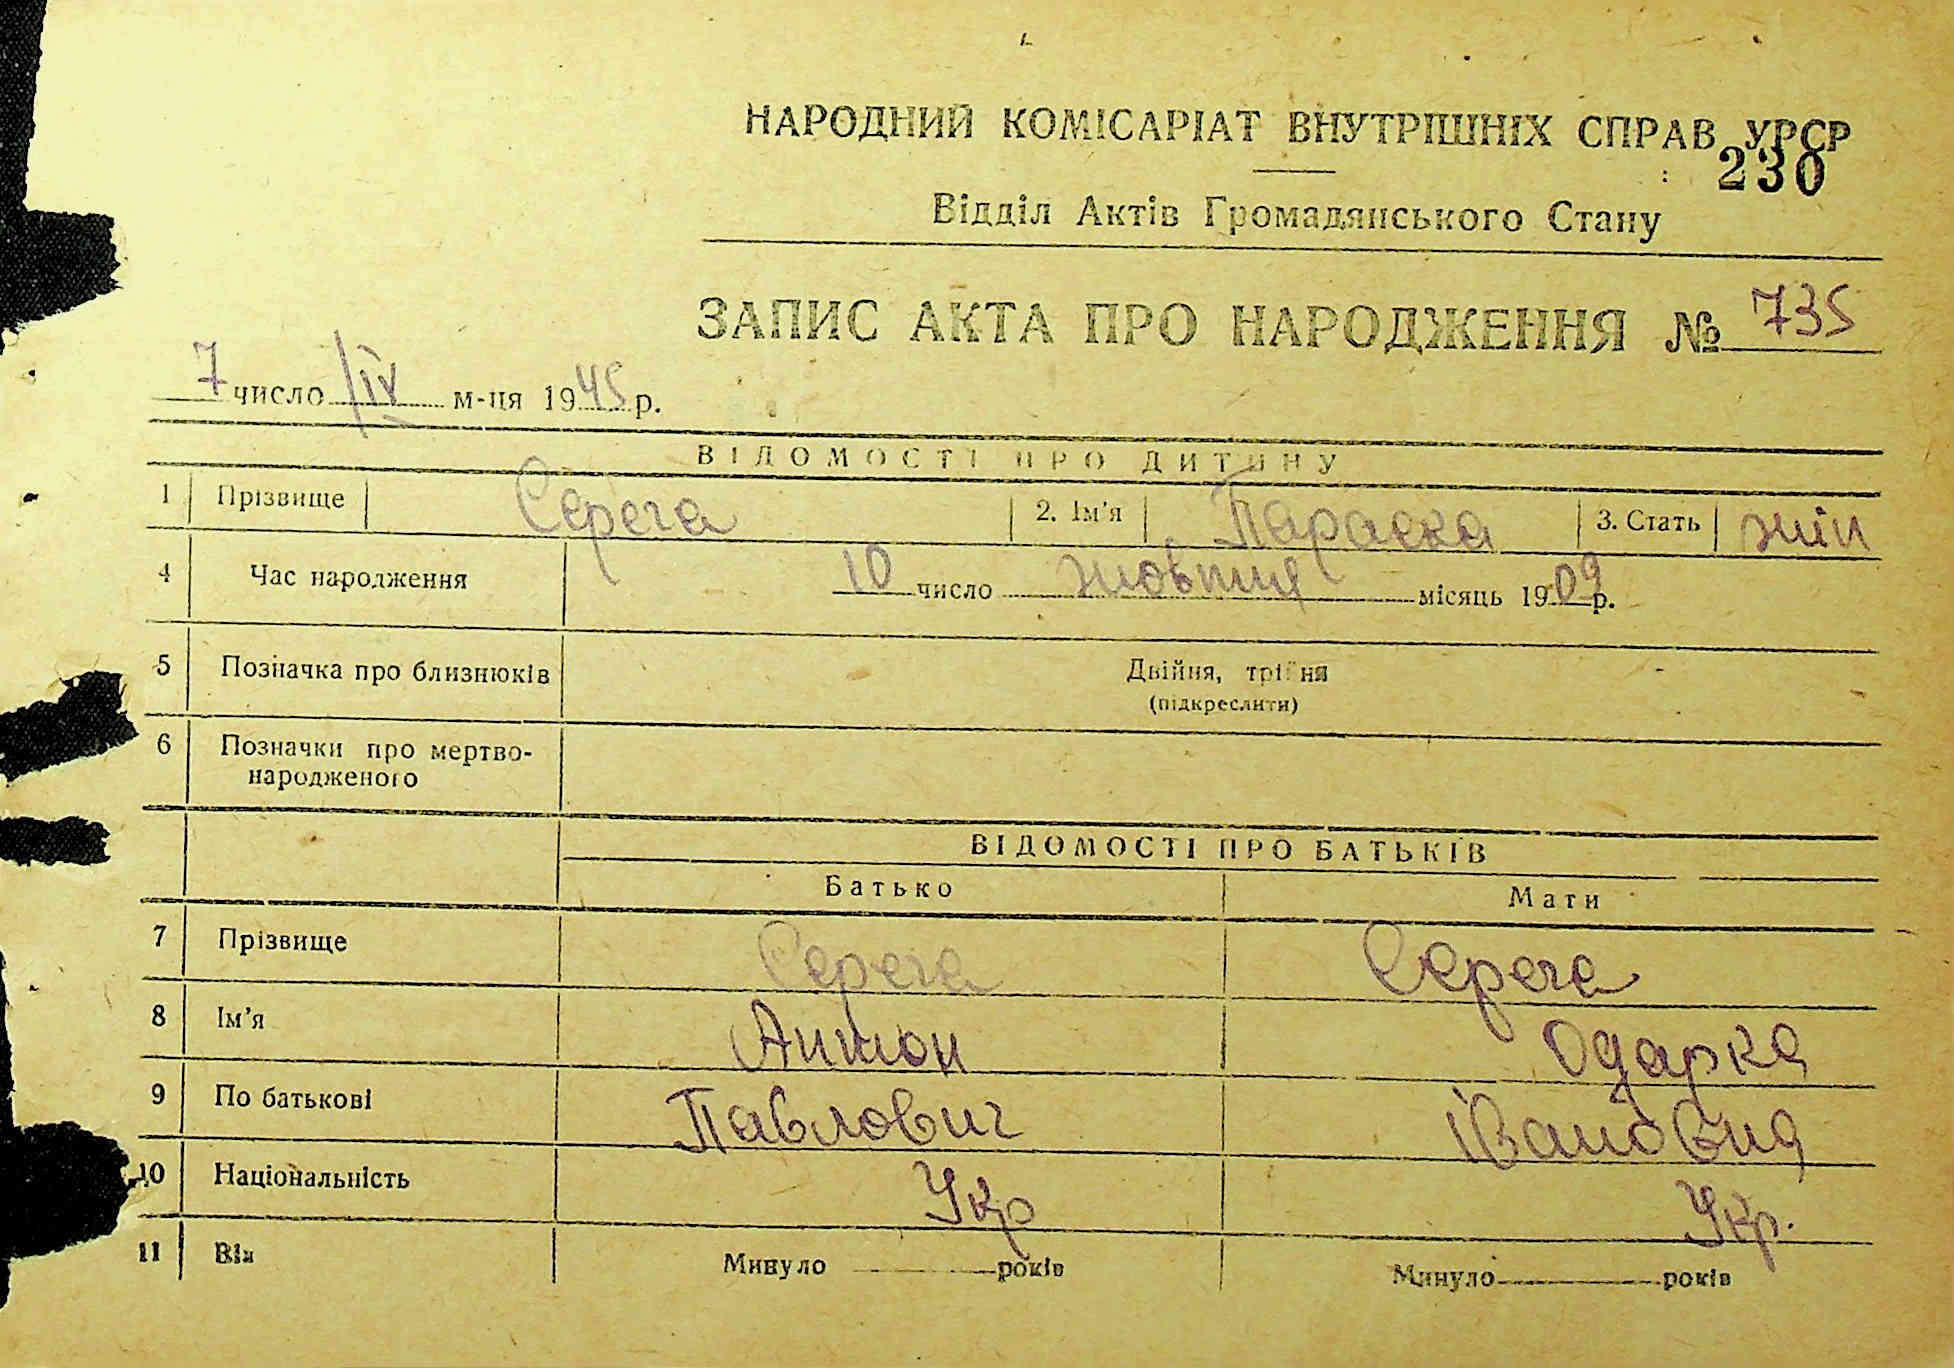 НАРОДНИЙ КОМІСАРІАТ ВНУТРІШНІХ СПРАВ УРСР
230
Відділ Актів Громадянського Стану
ЗАПИС АКТА ПРО НАРОДЖЕННЯ № 735
7 число IV м-ця 1945 р.
ВІДОМОСТІ ПРО ДИТИНУ
1 Прізвище Серега 2. Ім'я Параска 3. Стать жін
4 Час народження 10 число жовтня місяць 1909 р.
5 Позначка про близнюків Двійня, трійня
(підкреслити)
6 Позначки про мертво-
народженого
ВІДОМОСТІ ПРО БАТЬКІВ
Батько Мати
7 Прізвище Серега Серега
8 Ім'я Антон Одарка
9 По батькові Павлович Івановна
10 Національність Укр Укр.
11 Вік Минуло років Минуло років